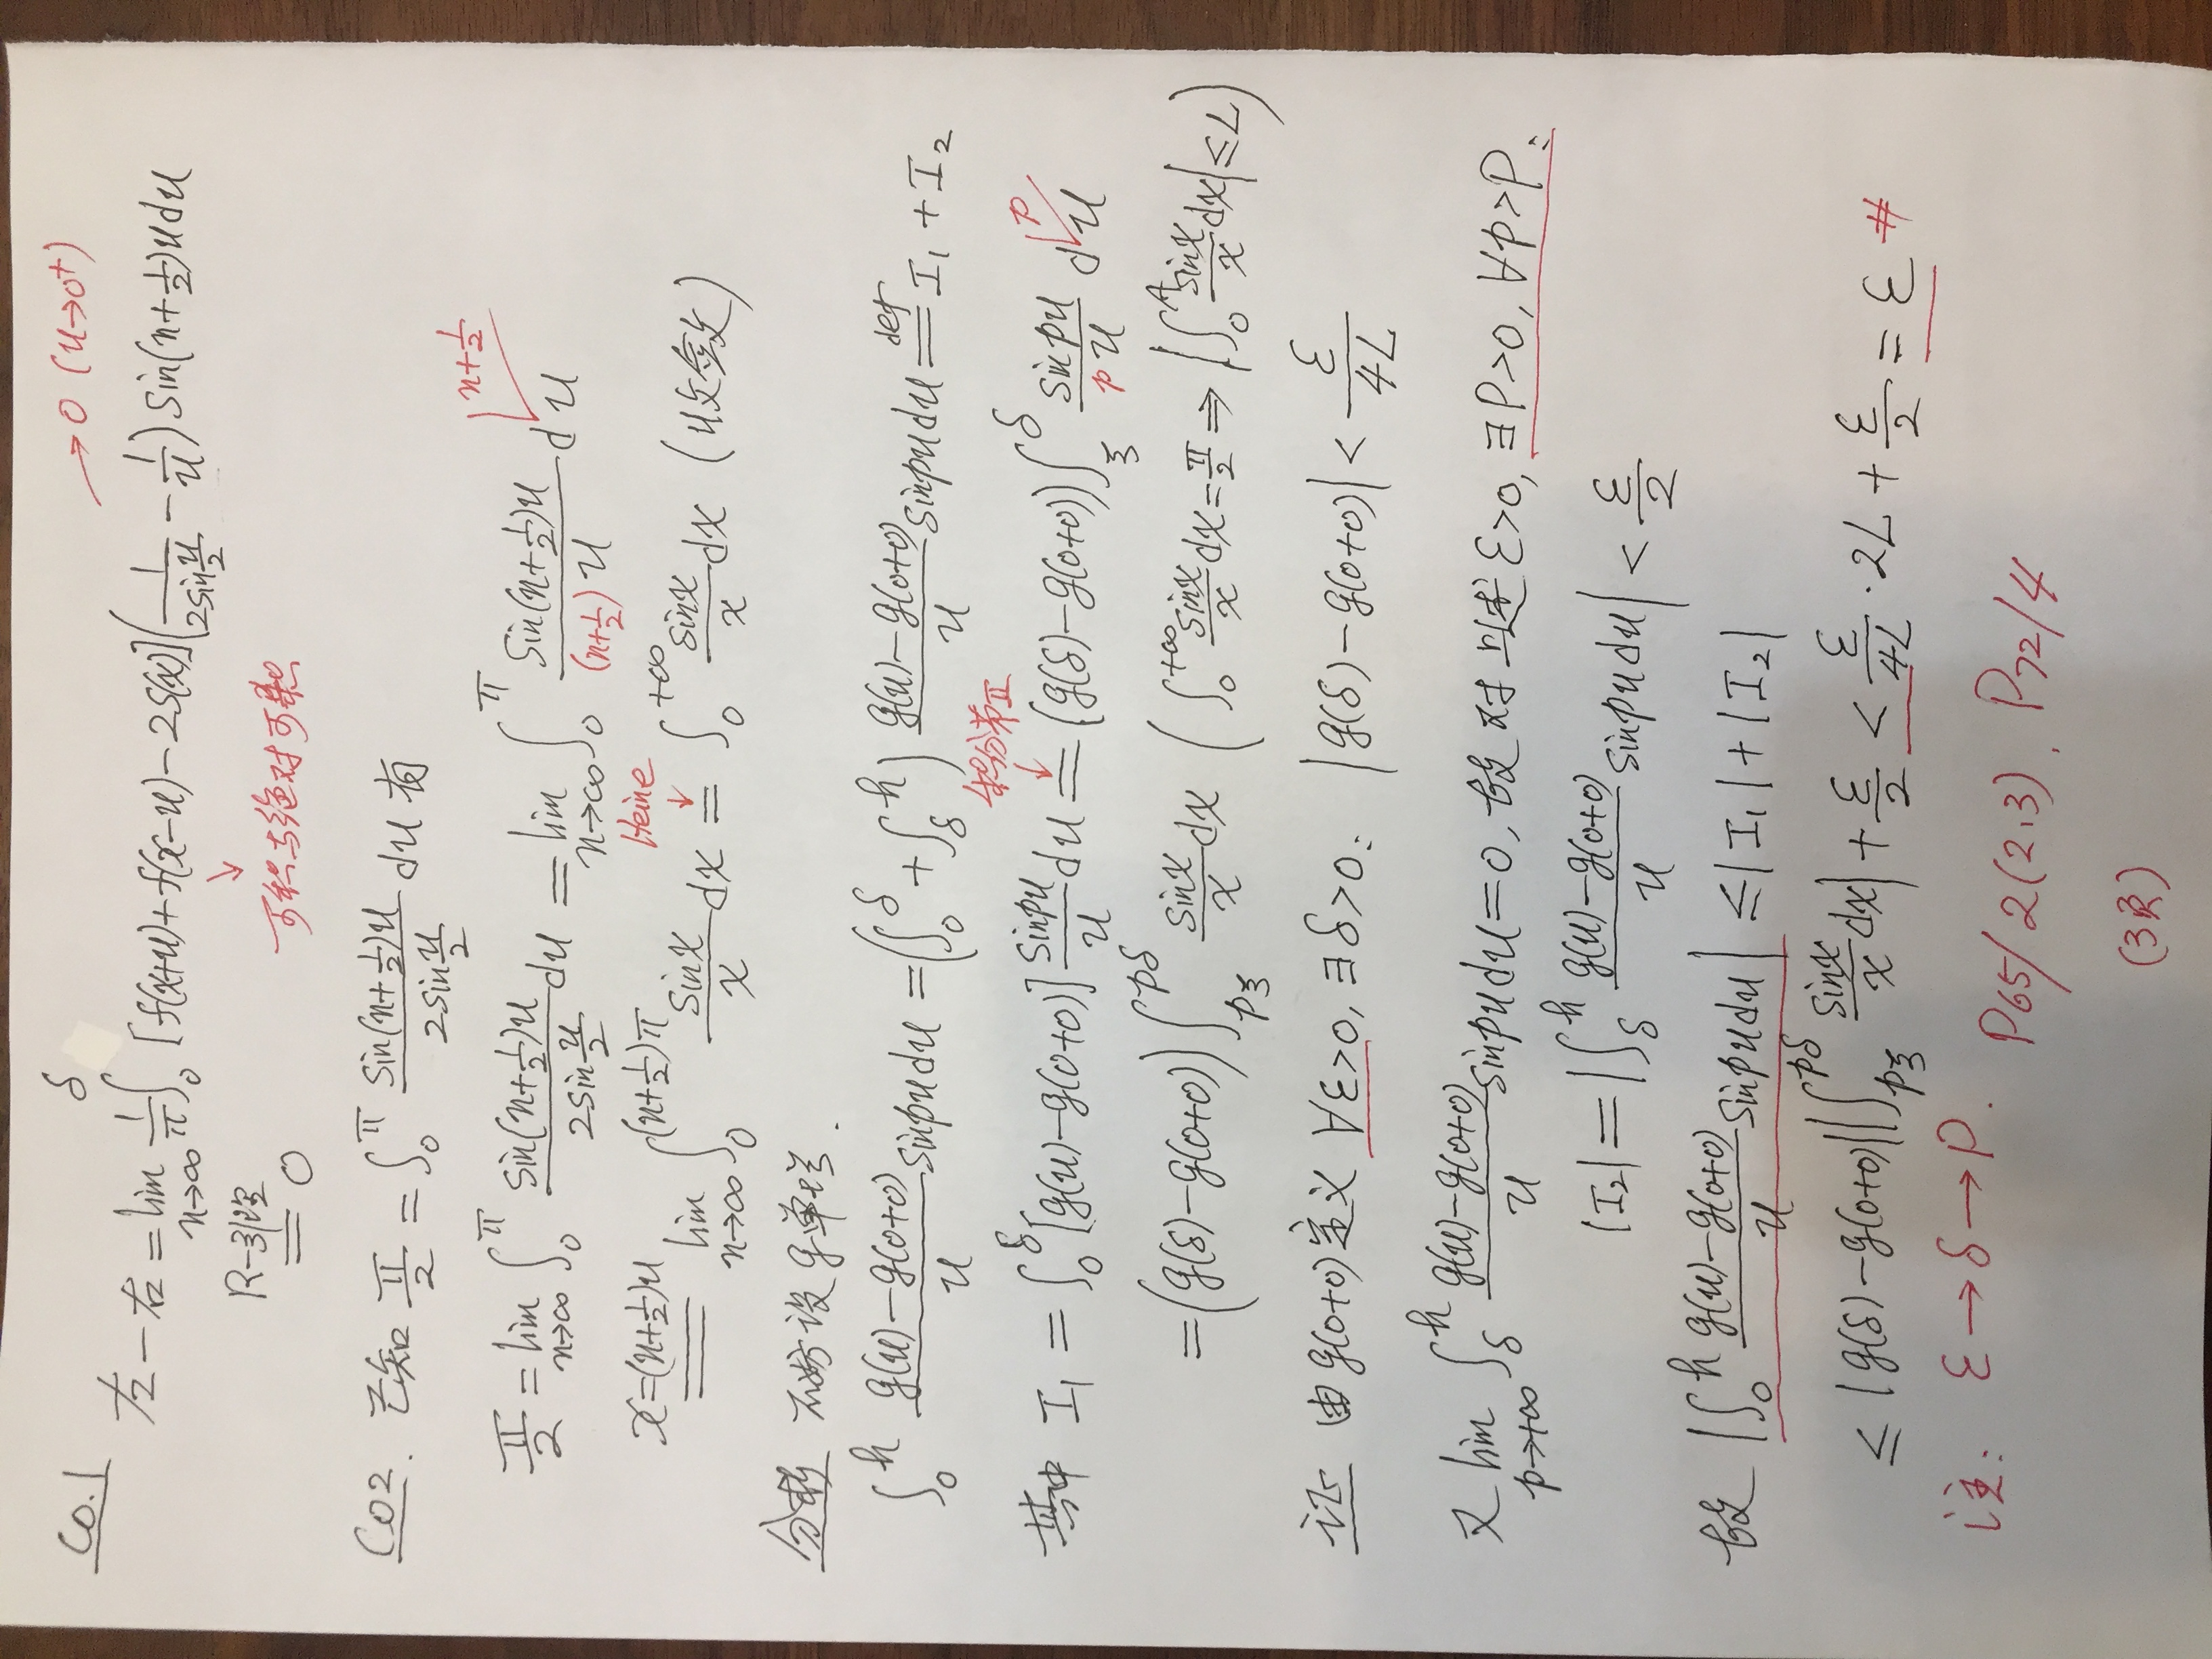 →0 (u→0⁺)
Co.1
左-右 = lim_{n→∞} 1/π ∫_0^δ [f(x+u)+f(x-u)-2S(x)](1/(2sin u/2) - 1/u) sin(n+1/2)u du
R-引理
= 0
↓
可积与绝对可积
Co2. 已知 π/2 = ∫_0^π sin(n+1/2)u / (2sin u/2) du 有
n+1/2
π/2 = lim_{n→∞} ∫_0^π sin(n+1/2)u / (2sin u/2) du = lim_{n→∞} ∫_0^π sin(n+1/2)u / ((n+1/2)u) du
Heine
↓
x=(n+1/2)u
= lim_{n→∞} ∫_0^{(n+1/2)π} sinx/x dx = ∫_0^{+∞} sinx/x dx (收敛)
分析 不妨设g单增.
∫_0^h (g(u)-g(0+0))/u sinpu du = (∫_0^δ + ∫_δ^h) (g(u)-g(0+0))/u sinpu du def= I₁ + I₂
积分第II
↓
p
其中 I₁ = ∫_0^δ [g(u)-g(0+0)] sinpu/u du = (g(δ)-g(0+0)) ∫_ξ^δ sinpu/(pu) du
= (g(δ)-g(0+0)) ∫_{pξ}^{pδ} sinx/x dx (∫_0^{+∞} sinx/x dx = π/2 ⇒ |∫_0^A sinx/x dx| ≤ L)
证 由g(0+0)定义 ∀ε>0, ∃δ>0: |g(δ)-g(0+0)| < ε/4L
又 lim_{p→+∞} ∫_δ^h (g(u)-g(0+0))/u sinpu du = 0, 故对上述ε>0, ∃P>0, ∀p>P:
|I₂| = |∫_δ^h (g(u)-g(0+0))/u sinpu du| < ε/2
故 |∫_0^h (g(u)-g(0+0))/u sinpu du| ≤ |I₁| + |I₂|
≤ |g(δ)-g(0+0)| |∫_{pξ}^{pδ} sinx/x dx| + ε/2 < ε/4L · 2L + ε/2 = ε #
注: ε→δ→P.
P65/2(2,3). P72/4
(3页)